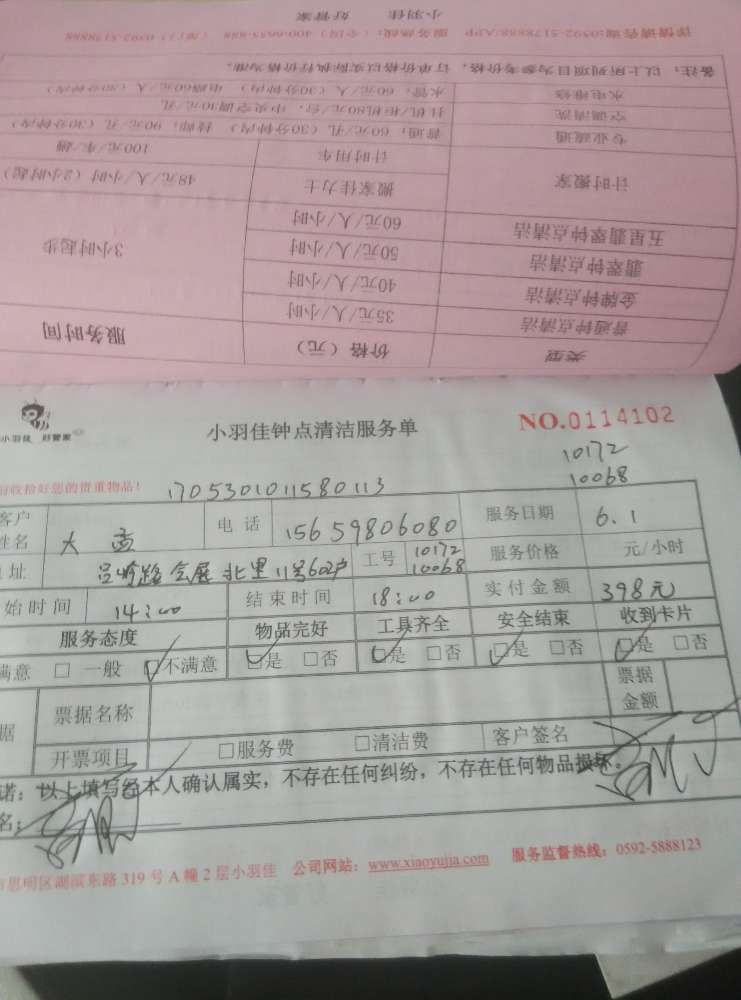 详情请咨询:0592-5178888/APP 服务热线：400-6655-888 （厦门）0592-5178888
小羽佳 好管家
备注：以上所列项目为参考价格，订单价格以实际执行价格为准。
水电维修 水管：60元/人（30分钟内） 电路60元/人（30分钟内）
空调清洗 挂机/柜机80元/台，中央空调30元/孔
专业疏通 普通：60元/孔（30分钟内） 特殊：90元/孔（30分钟内）
计时搬家 计时用车 100元/车/趟
搬家佳力士 48元/人/小时（2小时起）
五星翡翠钟点清洁 60元/人/小时 3小时起步
翡翠钟点清洁 50元/人/小时
金牌钟点清洁 40元/人/小时
普通钟点清洁 35元/人/小时
类型 价格（元） 服务时间
小羽佳 好管家
小羽佳钟点清洁服务单
NO.0114102
10172
10068
收拾好您的贵重物品！ 1705301011580113
客户姓名 大孟 电话 15659806080 服务日期 6.1
址 吕岭路会展北里11号602户 工号 10172 10068 服务价格 元/小时
始时间 14:00 结束时间 18:00 实付金额 398元
服务态度 物品完好 工具齐全 安全结束 收到卡片
满意 □一般 ☑不满意 ☑是 □否 ☑是 □否 ☑是 □否 ☑是 □否
据 票据名称 票据金额
开票项目 □服务费 □清洁费 客户签名
诺：以上填写经本人确认属实，不存在任何纠纷，不存在任何物品损坏。
名：
市思明区湖滨东路319号A幢2层小羽佳 公司网站：www.xiaoyujia.com 服务监督热线：0592-5888123